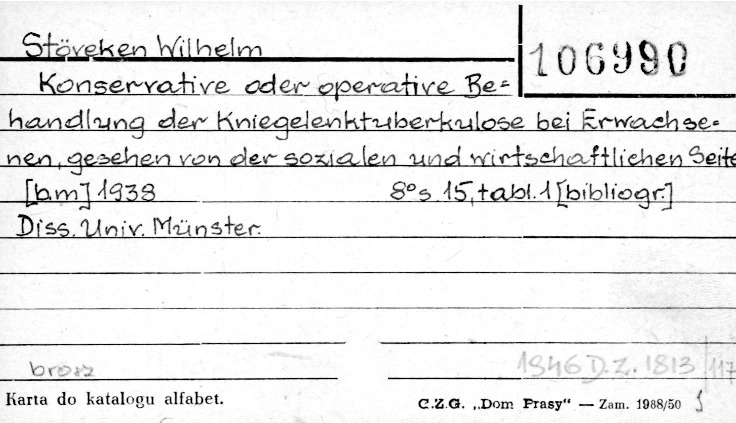 Stöveken Wilhelm
106990
Konservative oder operative Be=
handlung der Kniegelenktuberkulose bei Erwachse=
nen, gesehen von der sozialen und wirtschaftlichen Seite
[b.m] 1938 8° s 15, tabl. 1 [bibliogr.]
Diss. Univ. Münster.
brosz
1946 D.Z. 1813 117
Karta do katalogu alfabet.
C.Z.G. „Dom Prasy" — Zam. 1988/50